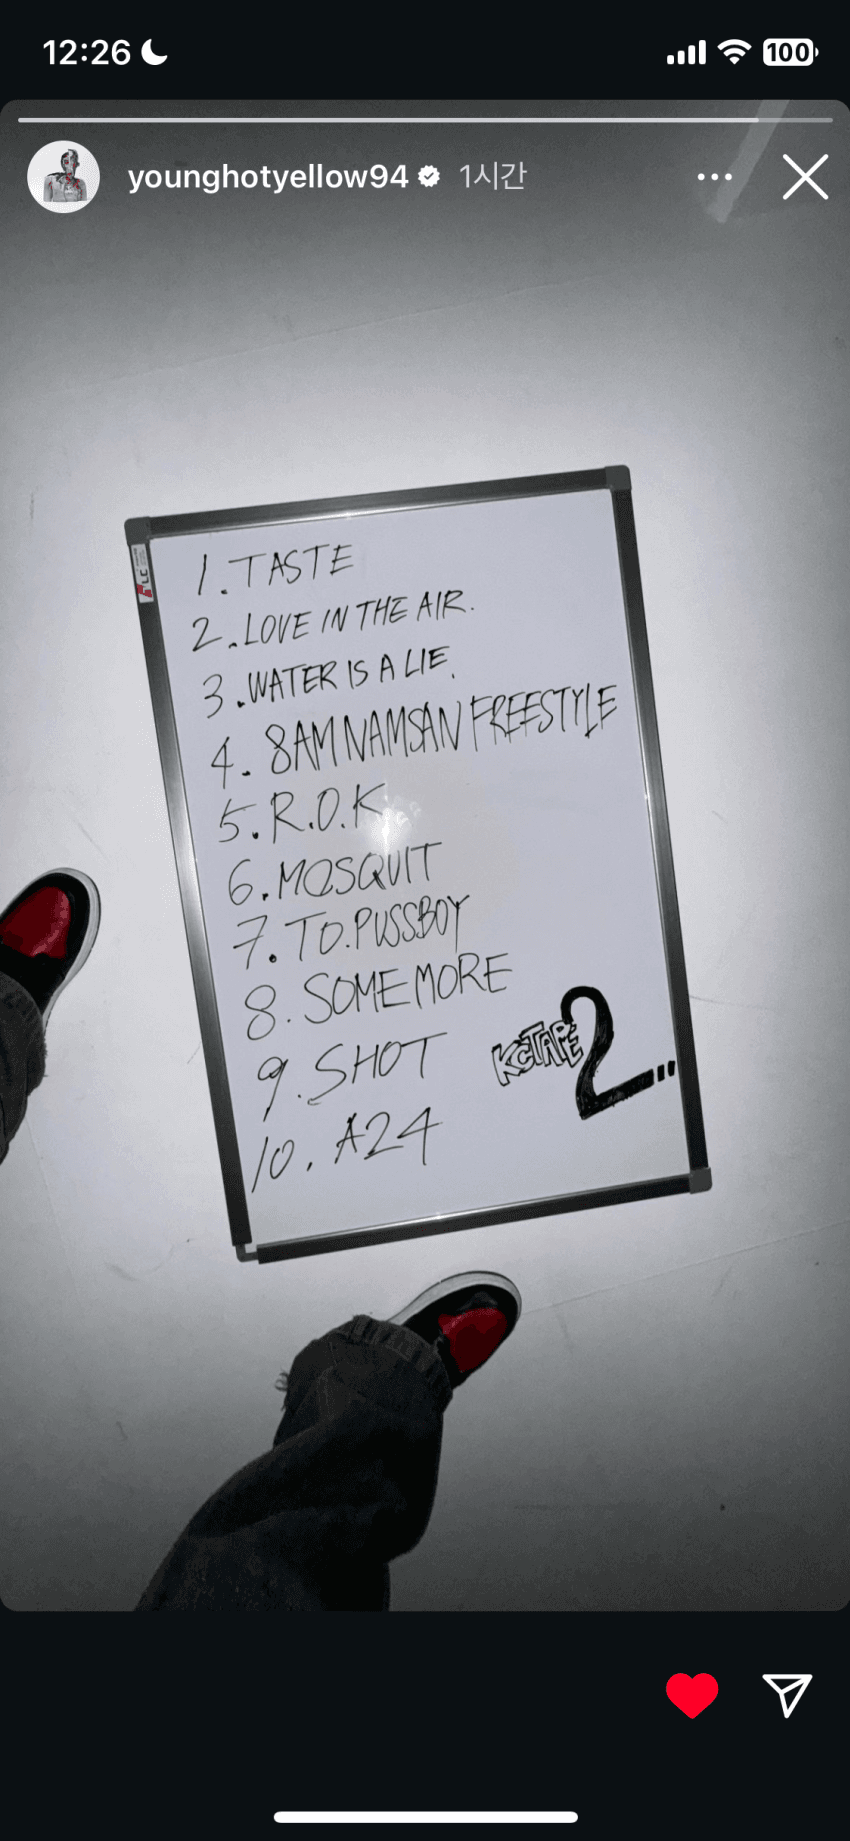 12:26
100
younghotyellow94 1시간
1. TASTE
2. LOVE IN THE AIR.
3. WATER IS A LIE.
4. 8AM NAMSAN FREESTYLE
5. R.O.K
6. MOSQUIT
7. TO. PUSSBOY
8. SOME MORE
9. SHOT
10. A24
KCTAPE 2...